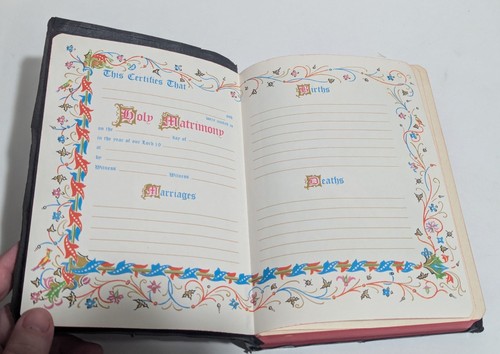 This Certifies That
and
were united in
Holy Matrimony
on the day of
in the year of our Lord 19
at
by
Witness Witness
Marriages
Births
Deaths